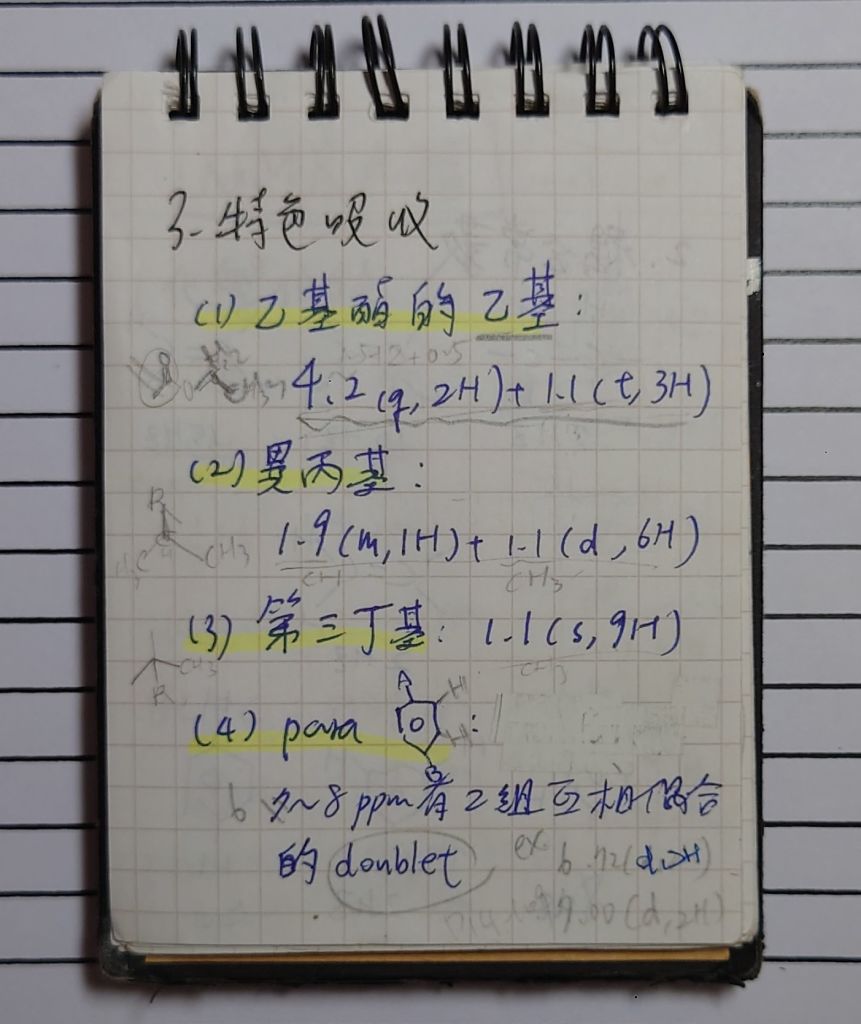 3-特色吸收
(1)乙基酯的乙基:
1.5+1.2+0.5
4.2(q,2H)+1.1(t,3H)
(2)異丙基:
R
CH3
1-9(m,1H)+1-1(d,6H)
CH CH3
(3)第三丁基:1-1(s,9H)
CH3 CH3
R
(4)para A H H B:
6 7~8ppm有2組互相偶合
的doublet ex 6.72(d,2H)
7.00(d,2H)